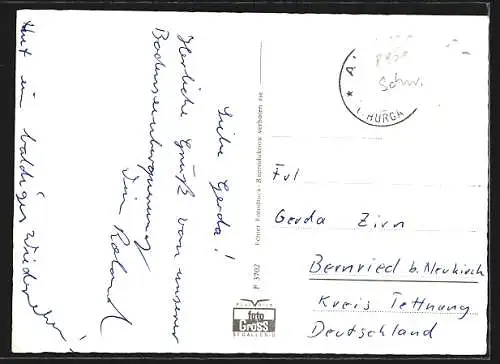 Liebe Gerda!
Herzliche Grüße von unserer
Bodenseeumquerung
Dein Roland
Auf ein baldiges Wiedersehn!
P 3702
Reproduktion verboten
foto
Gross
ST. GALLEN
THURGA
Schw.
Frl
Gerda Zirn
Bernried b. Neukirch
Kreis Tettnang
Deutschland